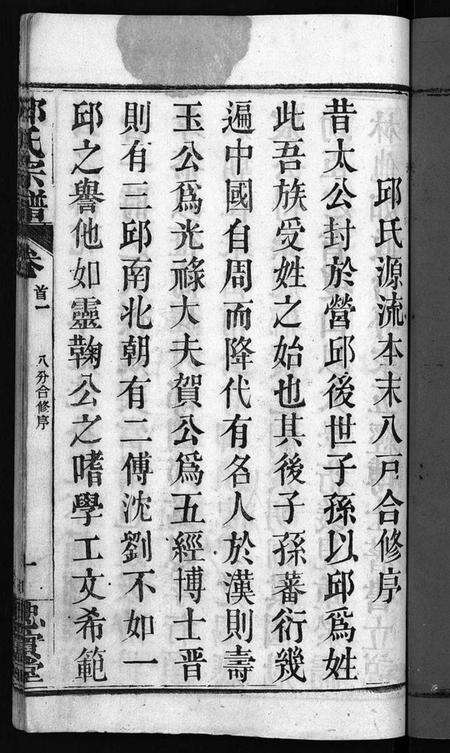 邱氏源流本末八戸合修序
昔太公封於營邱後世子孫以邱爲姓
此吾族受姓之始也其後子孫蕃衍幾
遍中國自周而降代有名人於漢則壽
玉公爲光祿大夫賀公爲五經博士晋
則有三邱南北朝有二傅沈劉不如一
邱之譽他如靈鞠公之嗜學工文希範
邱氏宗譜
卷
首一
八分合修序
一